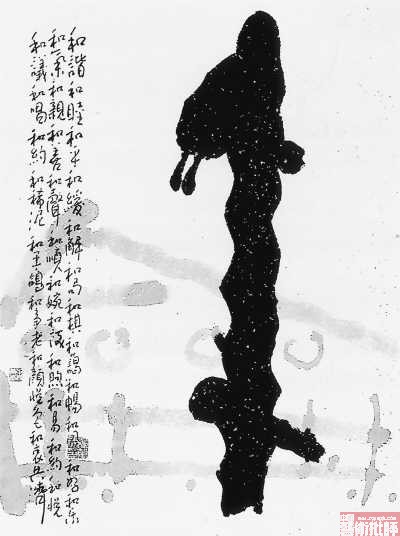 和諧和睦和平和緩和解和局和棋和藹和暢和風和好和樂
和氣和親和善和聲和順和婉和談和煦和易和約和悅
和議和唱和約和稀泥和鴿和事老和顏悅色和衷共濟